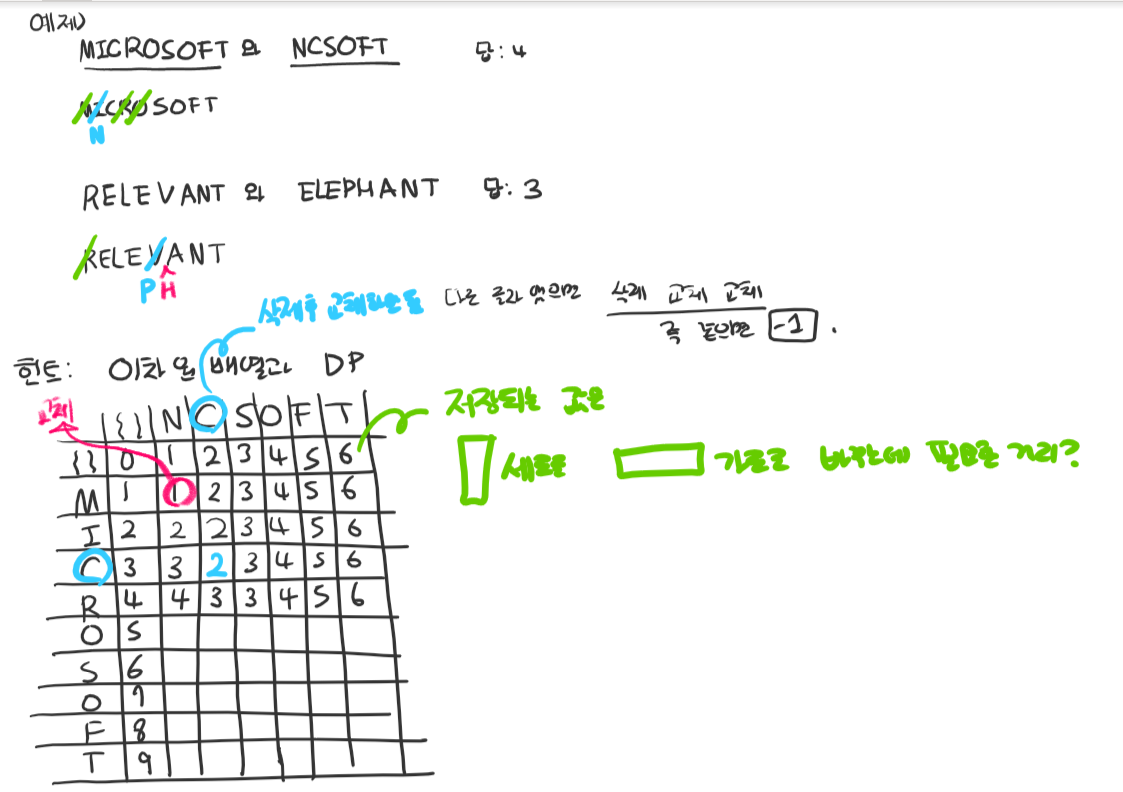 예제)
MICROSOFT 와 NCSOFT 답: 4
MICROSOFT
N
RELEVANT 와 ELEPHANT 답: 3
RELEVANT
P H
삭제후 교체하는 등 다른 글자 였으면 삭제 교체 교체
즉 높으면 -1.
힌트: 이차원 배열과 DP
교체
{} N C S O F T
저장되는 값은
{} 0 1 2 3 4 5 6
세로를 가로로 바꾸는데 필요한 거리?
M 1 1 2 3 4 5 6
I 2 2 2 3 4 5 6
C 3 3 2 3 4 5 6
R 4 4 3 3 4 5 6
O 5
S 6
O 7
F 8
T 9